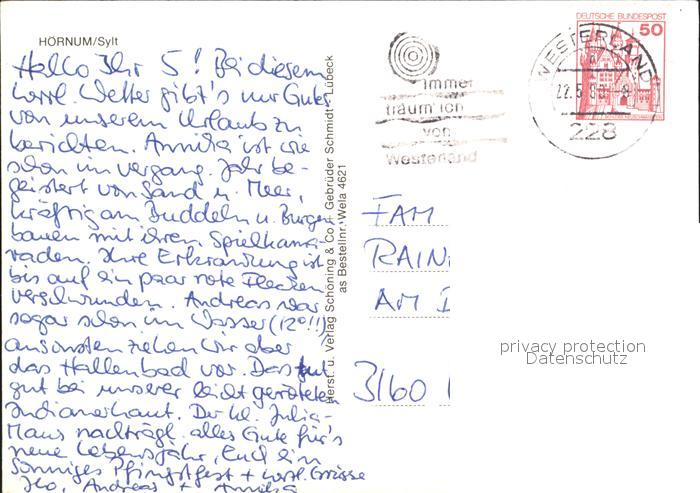 HÖRNUM/Sylt
Hallo Ihr 5! Bei diesem
herrl. Wetter gibt's nur Gutes
von unserem Urlaub zu
berichten. Annika ist wie
schon im vergang. Jahr be-
geistert von Sand u. Meer,
kräftig am Buddeln u. Burgen
bauen mit ihren Spielkame-
raden. Ihre Erkrankung ist
bis auf ein paar rote Flecken
verschwunden. Andreas war
sogar schon im Wasser (12°!!)
ansonsten ziehen wir aber
das Hallenbad vor. Das tut
gut bei unserer leicht geröteten
Indianerhaut. Der kl. Julia-
Maus nachträgl. alles Gute für's
neue Lebensjahr, Euch ein
sonniges Pfingstfest + herzl. Grüsse
Andreas + Annika
Herst. u. Verlag Schöning & Co + Gebrüder Schmidt - Lübeck
as Bestellnr. Wela 4621
immer
träum' ich
von
Westerland
DEUTSCHE BUNDESPOST
50
WESTERLAND
228
FAM
RAIN
AM
3160
privacy protection
Datenschutz